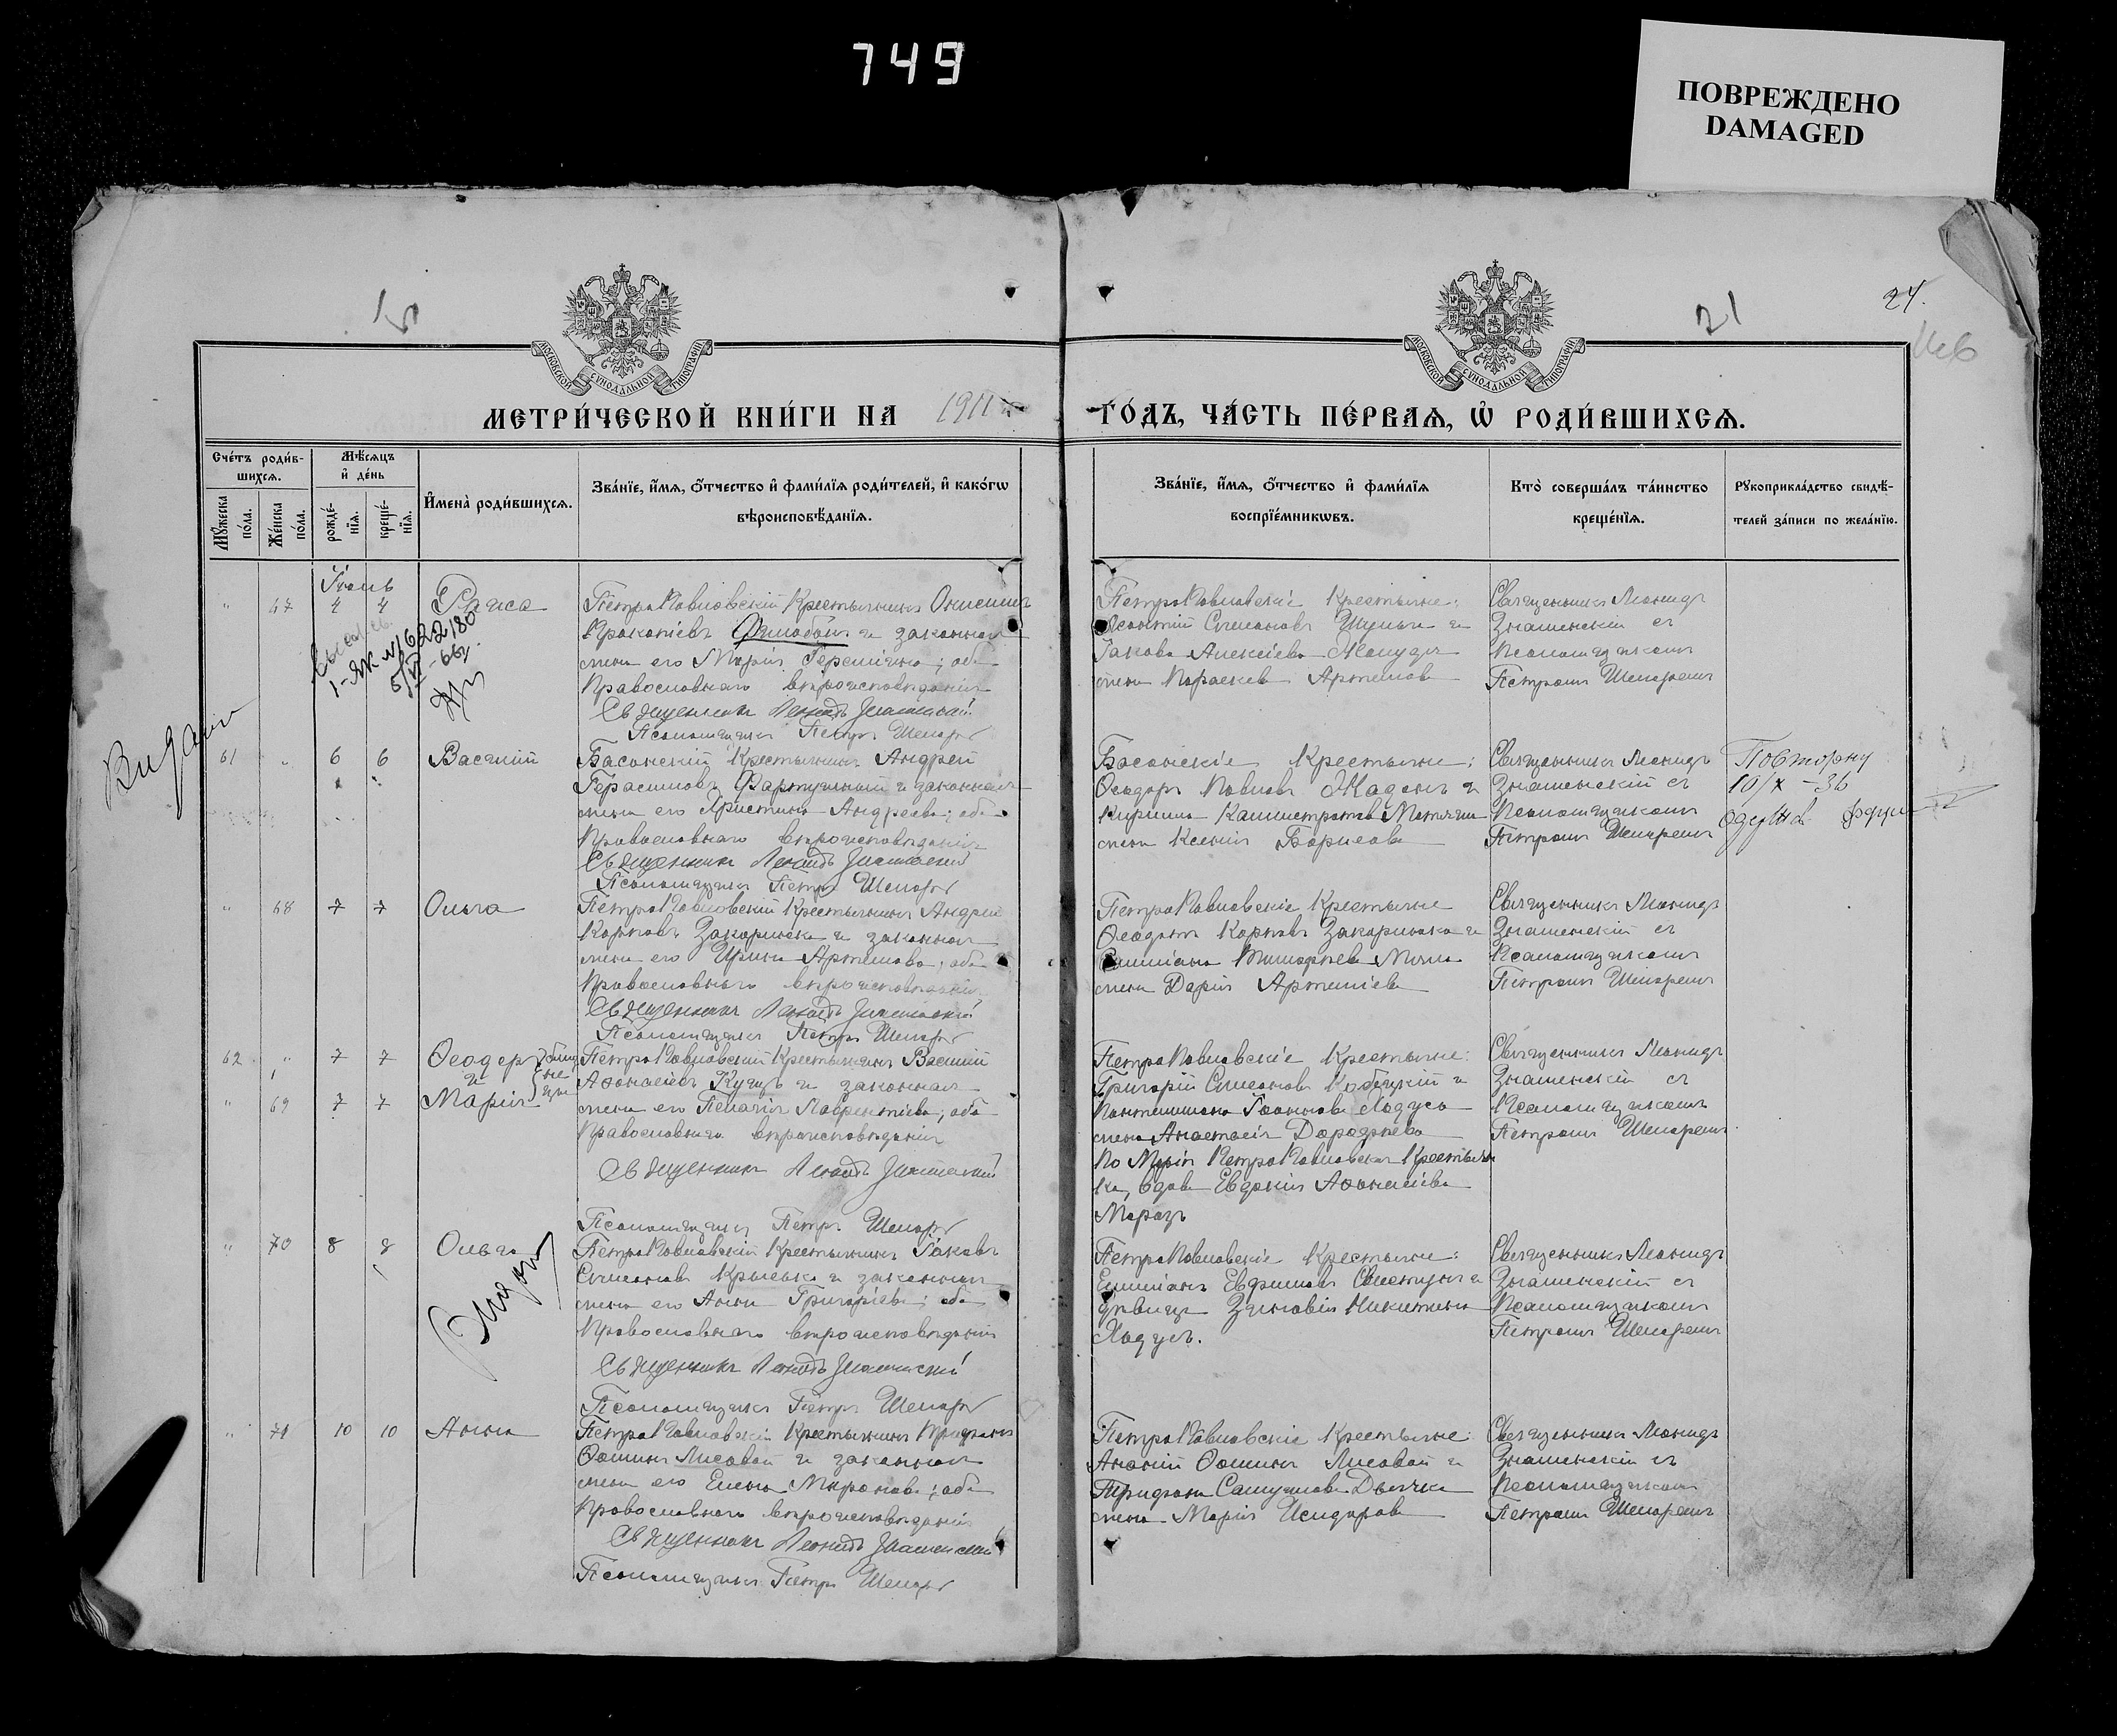 749
ПОВРЕЖДЕНО
DAMAGED
21
24.
МОСКОВСКОЙ СѴНОДАЛЬНОЙ ТИПОГРАФІИ
МОСКОВСКОЙ СѴНОДАЛЬНОЙ ТИПОГРАФІИ
МЕТРИ́ЧЕСКОЙ КНИ́ГИ НА 1911
ГО́ДЪ, ЧА́СТЬ ПЕ́РВАЯ, Ѡ҆ РОДИ́ВШИХСЯ.
Сче́тъ роди́в-
шихся.
Мѣ́сяцъ
и҆ де́нь
Мꙋ́жеска
по́ла.
Же́нска
по́ла.
рожде́-
нїя.
креще́-
нїя.
И҆мена̀ роди́вшихся.
Зва́нїе, и҆́мя, ѻ҆́тчество и҆ фами́лїя роди́телей, и҆ како́гѡ
вѣроисповѣ́данїя.
Зва́нїе, и҆́мя, ѻ҆́тчество и҆ фами́лїя
воспрїе́мникѡвъ.
Кто̀ соверша́лъ та́инство
креще́нїя.
Рꙋкоприкла́дство свидѣ́-
телей за́писи по жела́нїю.
Іюнь
" 67 4 4 Раиса
ПетроПавловскій Крестьянинъ Онисимъ
Прокопіевъ и законная
жена его Марія Іереміина; оба
Православнаго вѣроисповѣданія
Священникъ Леонидъ Знаменскій
Псаломщикъ Петръ Шепаръ
ПетроПавловскіе Крестьяне:
Леонтій Симеоновъ и
Іакова Алексіева
жена Параскева Артемова
Священникъ Леонидъ
Знаменскій съ
Псаломщикомъ
Петромъ Шепаремъ
Видано
61 " 6 6 Василій
Басанскій Крестьянинъ Андрей
Герасимовъ и законная
жена его Христина Андреева; оба
Православнаго вѣроисповѣданія
Священникъ Леонидъ Знаменскій
Псаломщикъ Петръ Шепаръ
Басанскіе Крестьяне:
Ѳеодоръ Павловъ и
Кирилла Каллистратова
жена Ксенія Борисова
Священникъ Леонидъ
Знаменскій съ
Псаломщикомъ
Петромъ Шепаремъ
Повторну
10/X - 36
" 68 7 7 Ольга
ПетроПавловскій Крестьянинъ Андрей
Карповъ Захаринска и законная
жена его Ирина Артемова; оба
Православнаго вѣроисповѣданія
Священникъ Леонидъ Знаменскій
Псаломщикъ Петръ Шепаръ
ПетроПавловскіе Крестьяне
Ѳеодотъ Карповъ и
жена Дарія Артеміева
Священникъ Леонидъ
Знаменскій съ
Псаломщикомъ
Петромъ Шепаремъ
62 " 7 7 Ѳеодоръ
и
" 69 7 7 Марія
близ
не
цы
ПетроПавловскій Крестьянинъ Василій
Аѳонасіевъ Куцъ и законная
жена его Пелагія Лаврентіева; оба
Православнаго вѣроисповѣданія
Священникъ Леонидъ Знаменскій
Псаломщикъ Петръ Шепаръ
ПетроПавловскіе Крестьяне:
Григорій Симеоновъ Кобецкій и
Пантелимона Іоаннова Ходуса
жена Анастасія Дорофіева
По Маріи ПетроПавловская Крестьян
ка, вдова Евдокія Аѳонасіева
Морозъ
Священникъ Леонидъ
Знаменскій съ
Псаломщикомъ
Петромъ Шепаремъ
" 70 8 8 Ольга
ПетроПавловскій Крестьянинъ Іаковъ
Симеоновъ и законная
жена его Анна Григоріева; оба
Православнаго вѣроисповѣданія
Священникъ Леонидъ Знаменскій
Псаломщикъ Петръ Шепаръ
ПетроПавловскіе Крестьяне:
Емиліанъ Евфимовъ и
дѣвица Зиновія Никитина
Ходусъ.
Священникъ Леонидъ
Знаменскій съ
Псаломщикомъ
Петромъ Шепаремъ
" 71 10 10 Анна
ПетроПавловскій Крестьянинъ
Ѳоминъ Лисовой и законная
жена его Елена Миронова; оба
Православнаго вѣроисповѣданія
Священникъ Леонидъ Знаменскій
Псаломщикъ Петръ Шепаръ
ПетроПавловскіе Крестьяне:
Ананій Ѳоминъ Лисовой и
Трифона Самуилова
жена Марія Исидорова
Священникъ Леонидъ
Знаменскій съ
Псаломщикомъ
Петромъ Шепаремъ